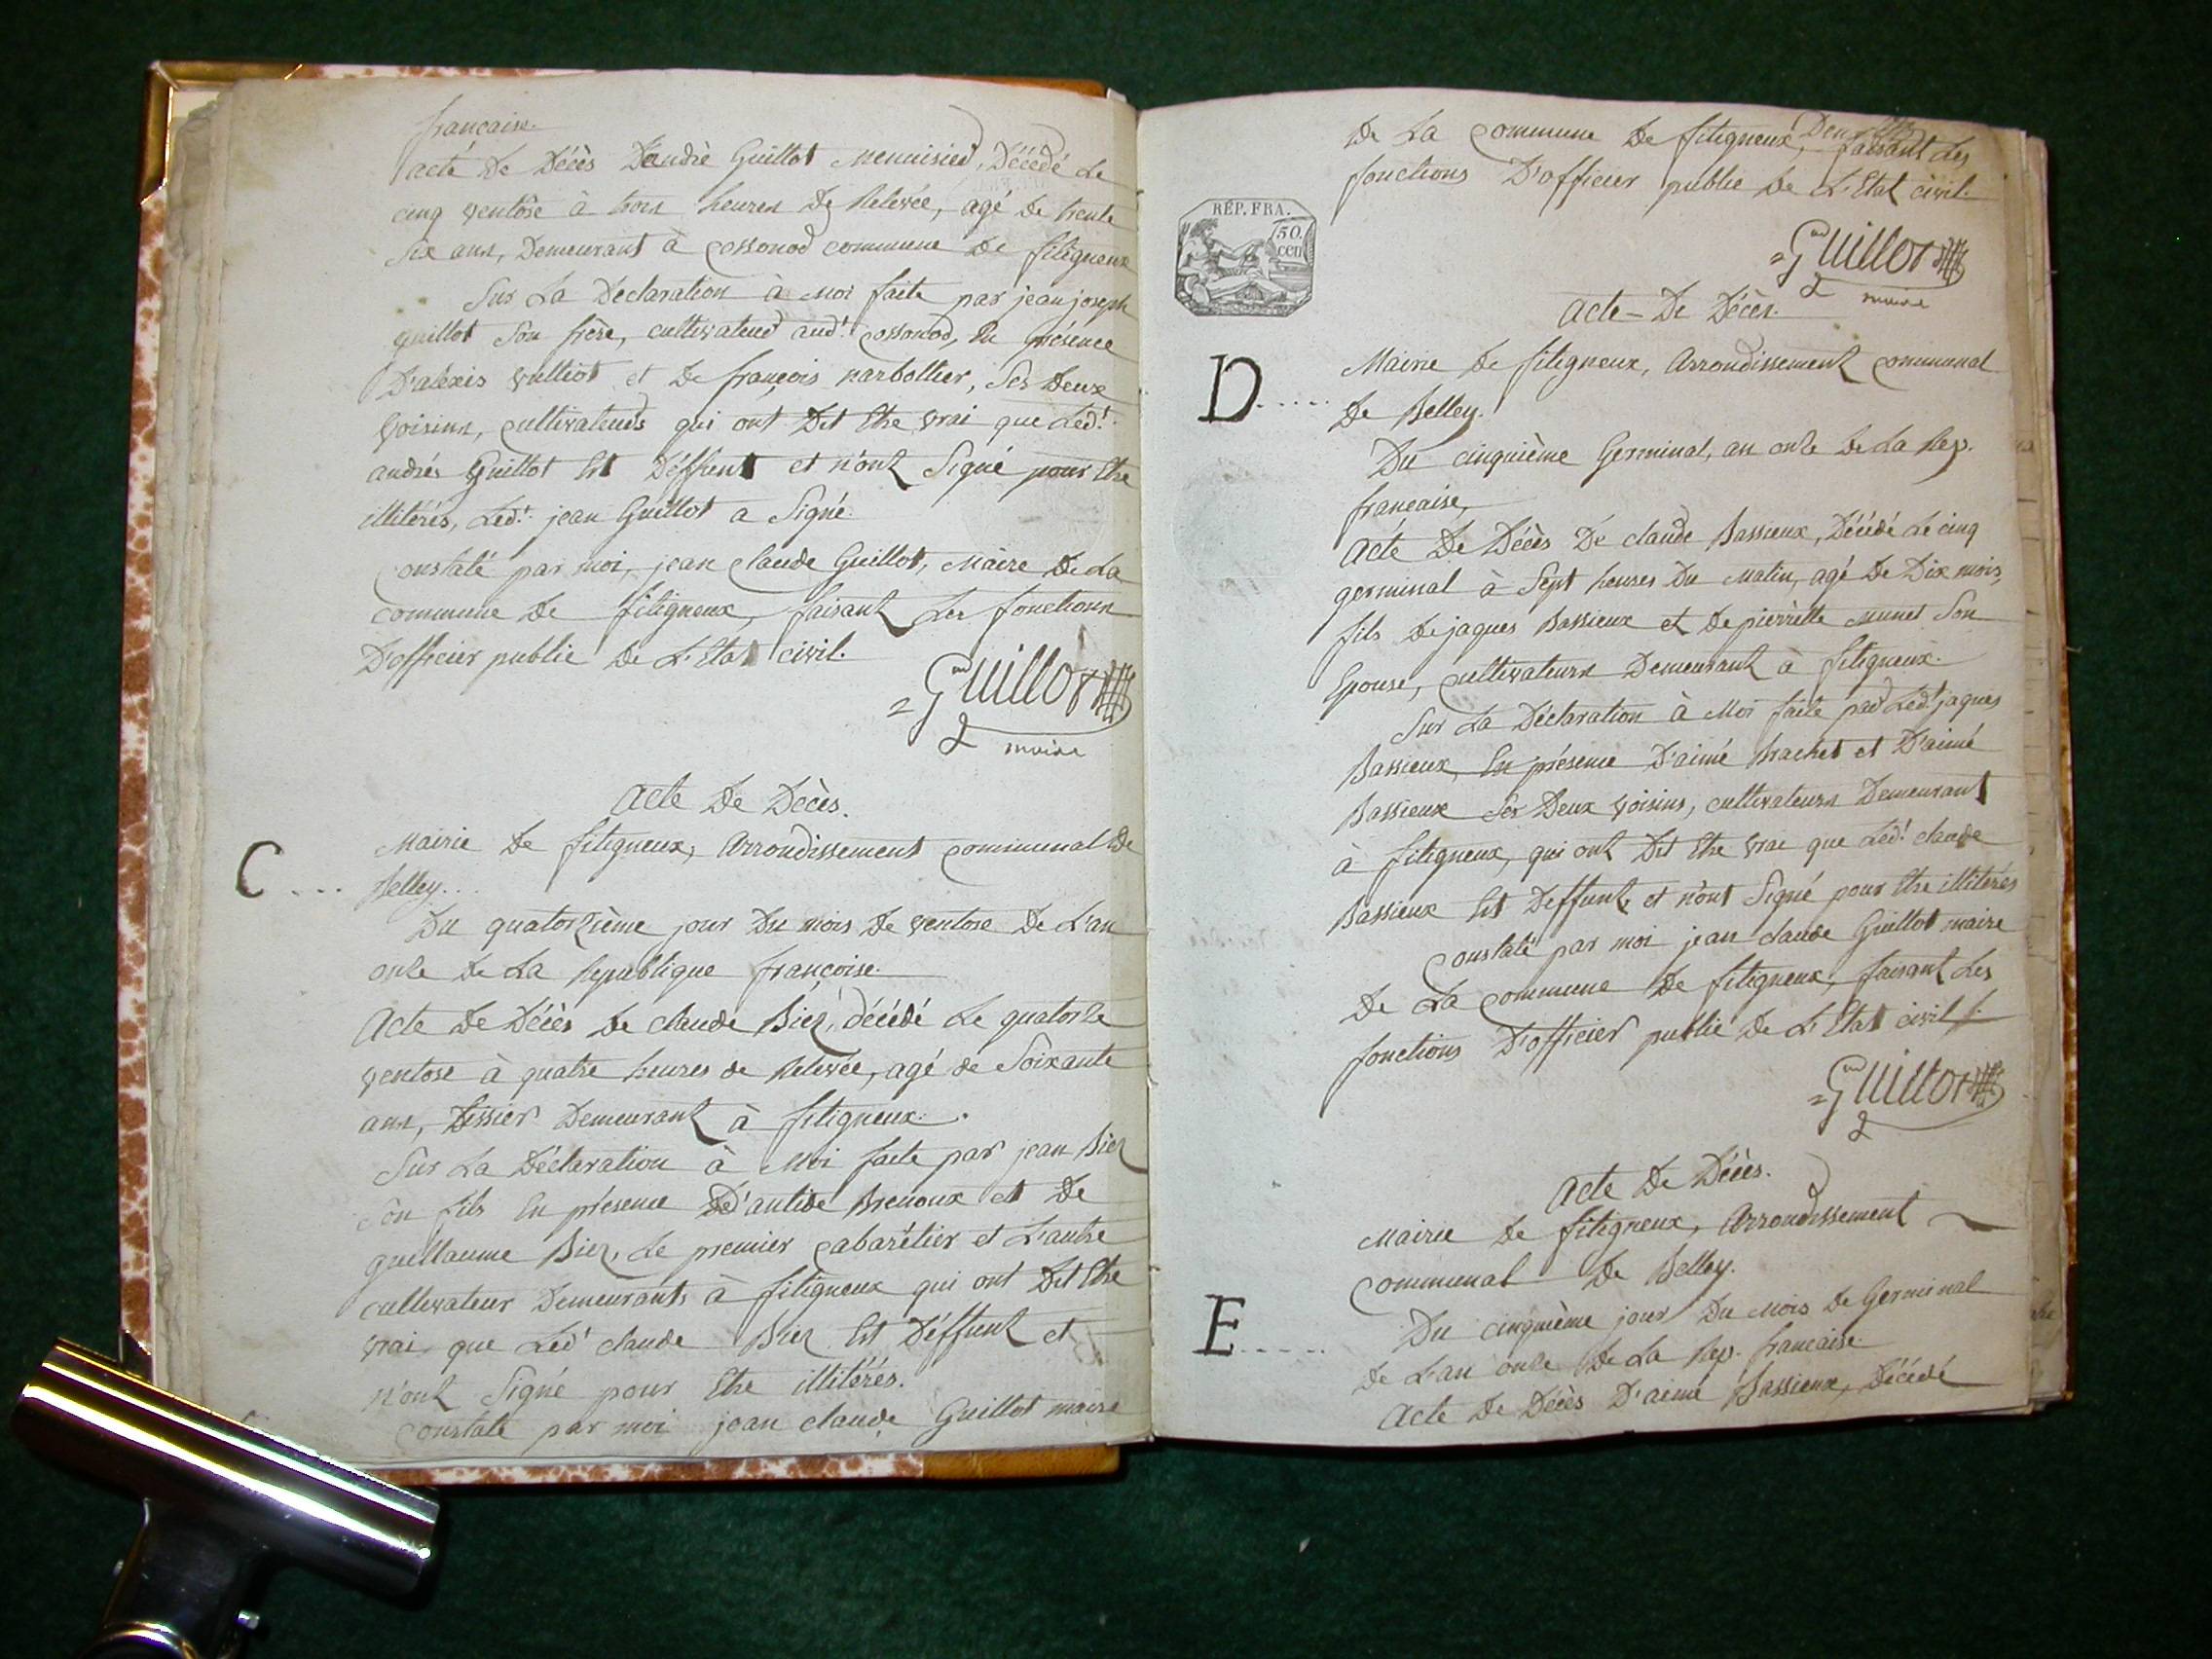 française.
acte de Décès D'andré Guillot menuisier, Décédé Le
cinq ventôse à trois heures de Relevée, agé de trente
Six ans, Demeurant à Cossonod commune de fitigneux
Sur La Déclaration à moi faite par jean joseph
guillot Son frère, cultivateur aud.t Cossonod, En présence
D'aléxis vulliot et De françois narbollier, Ses deux
voisins, cultivateurs qui ont Dit Etre vrai que Led.t
andrés Guillot Est Déffunt et n'ont Signé pour Etre
illitérés, Led.t jean Guillot a Signé.
Constaté par moi, jean Claude Guillot, Maire De La
commune de fitigneux, faisant Les fonctions
D'officier public de L'Etat civil.
Guillot
maire
Acte De Décès.
C....
Mairie de fitigneux, Arrondissement communal De
Belley...
Du quatorzième jour Du mois De ventose De L'an
onze de La Republique françoise.
Acte De Décès de claude Biez, décédé Le quatorze
ventose à quatre heures de Relevée, agé de Soixante
ans, tissier Demeurant à fitigneux.
Sur La Déclaration à Moi faite par jean Biez
Son fils En présence D'antide Brenoux et De
guillaume Biez, Le premier cabarétier et L'autre
cultivateur Demeurants à fitigneux qui ont Dit Etre
vrai que Led.t claude Biez Est Déffunt et
n'ont Signé pour Etre illitérés.
Constaté par moi jean claude Guillot maire
De La commune De fitigneux, faisant Les
fonctions D'officier public De L'Etat civil.
REP. FRA.
50.
cen
Guillot
maire
Acte De Décès.
D.....
Mairie de fitigneux, Arrondissement communal
De Belley.
Du cinquième Germinal, an onze De La Rep.
française,
Acte De Décès De claude Bassieux, Décédé Le cinq
germinal à Sept heures Du Matin, agé De Dix mois,
fils De jaques Bassieux et De pierrette munet Son
Epouse, cultivateurs Demeurant à fitigneux.
Sur La Déclaration à Moi faite par Led.t jaques
Bassieux, En présence D'aimé Brachet et D'aimé
Bassieux Ses Deux voisins, cultivateurs Demeurant
à fitigneux, qui ont Dit Etre vrai que Led.t claude
Bassieux Est Deffunt, et n'ont Signé pour Etre illitérés
Constaté par moi jean claude Guillot maire
De La commune De fitigneux, faisant Les
fonctions D'officier public De L'Etat civil.
Guillot
Acte De Décès.
Mairie De fitigneux, Arrondissement
communal De Belley.
E.....
Du cinquième jour Du Mois De Germinal
De L'an onze De La Rep. française.
Acte De Décès D'aimé Bassieux, Décédé